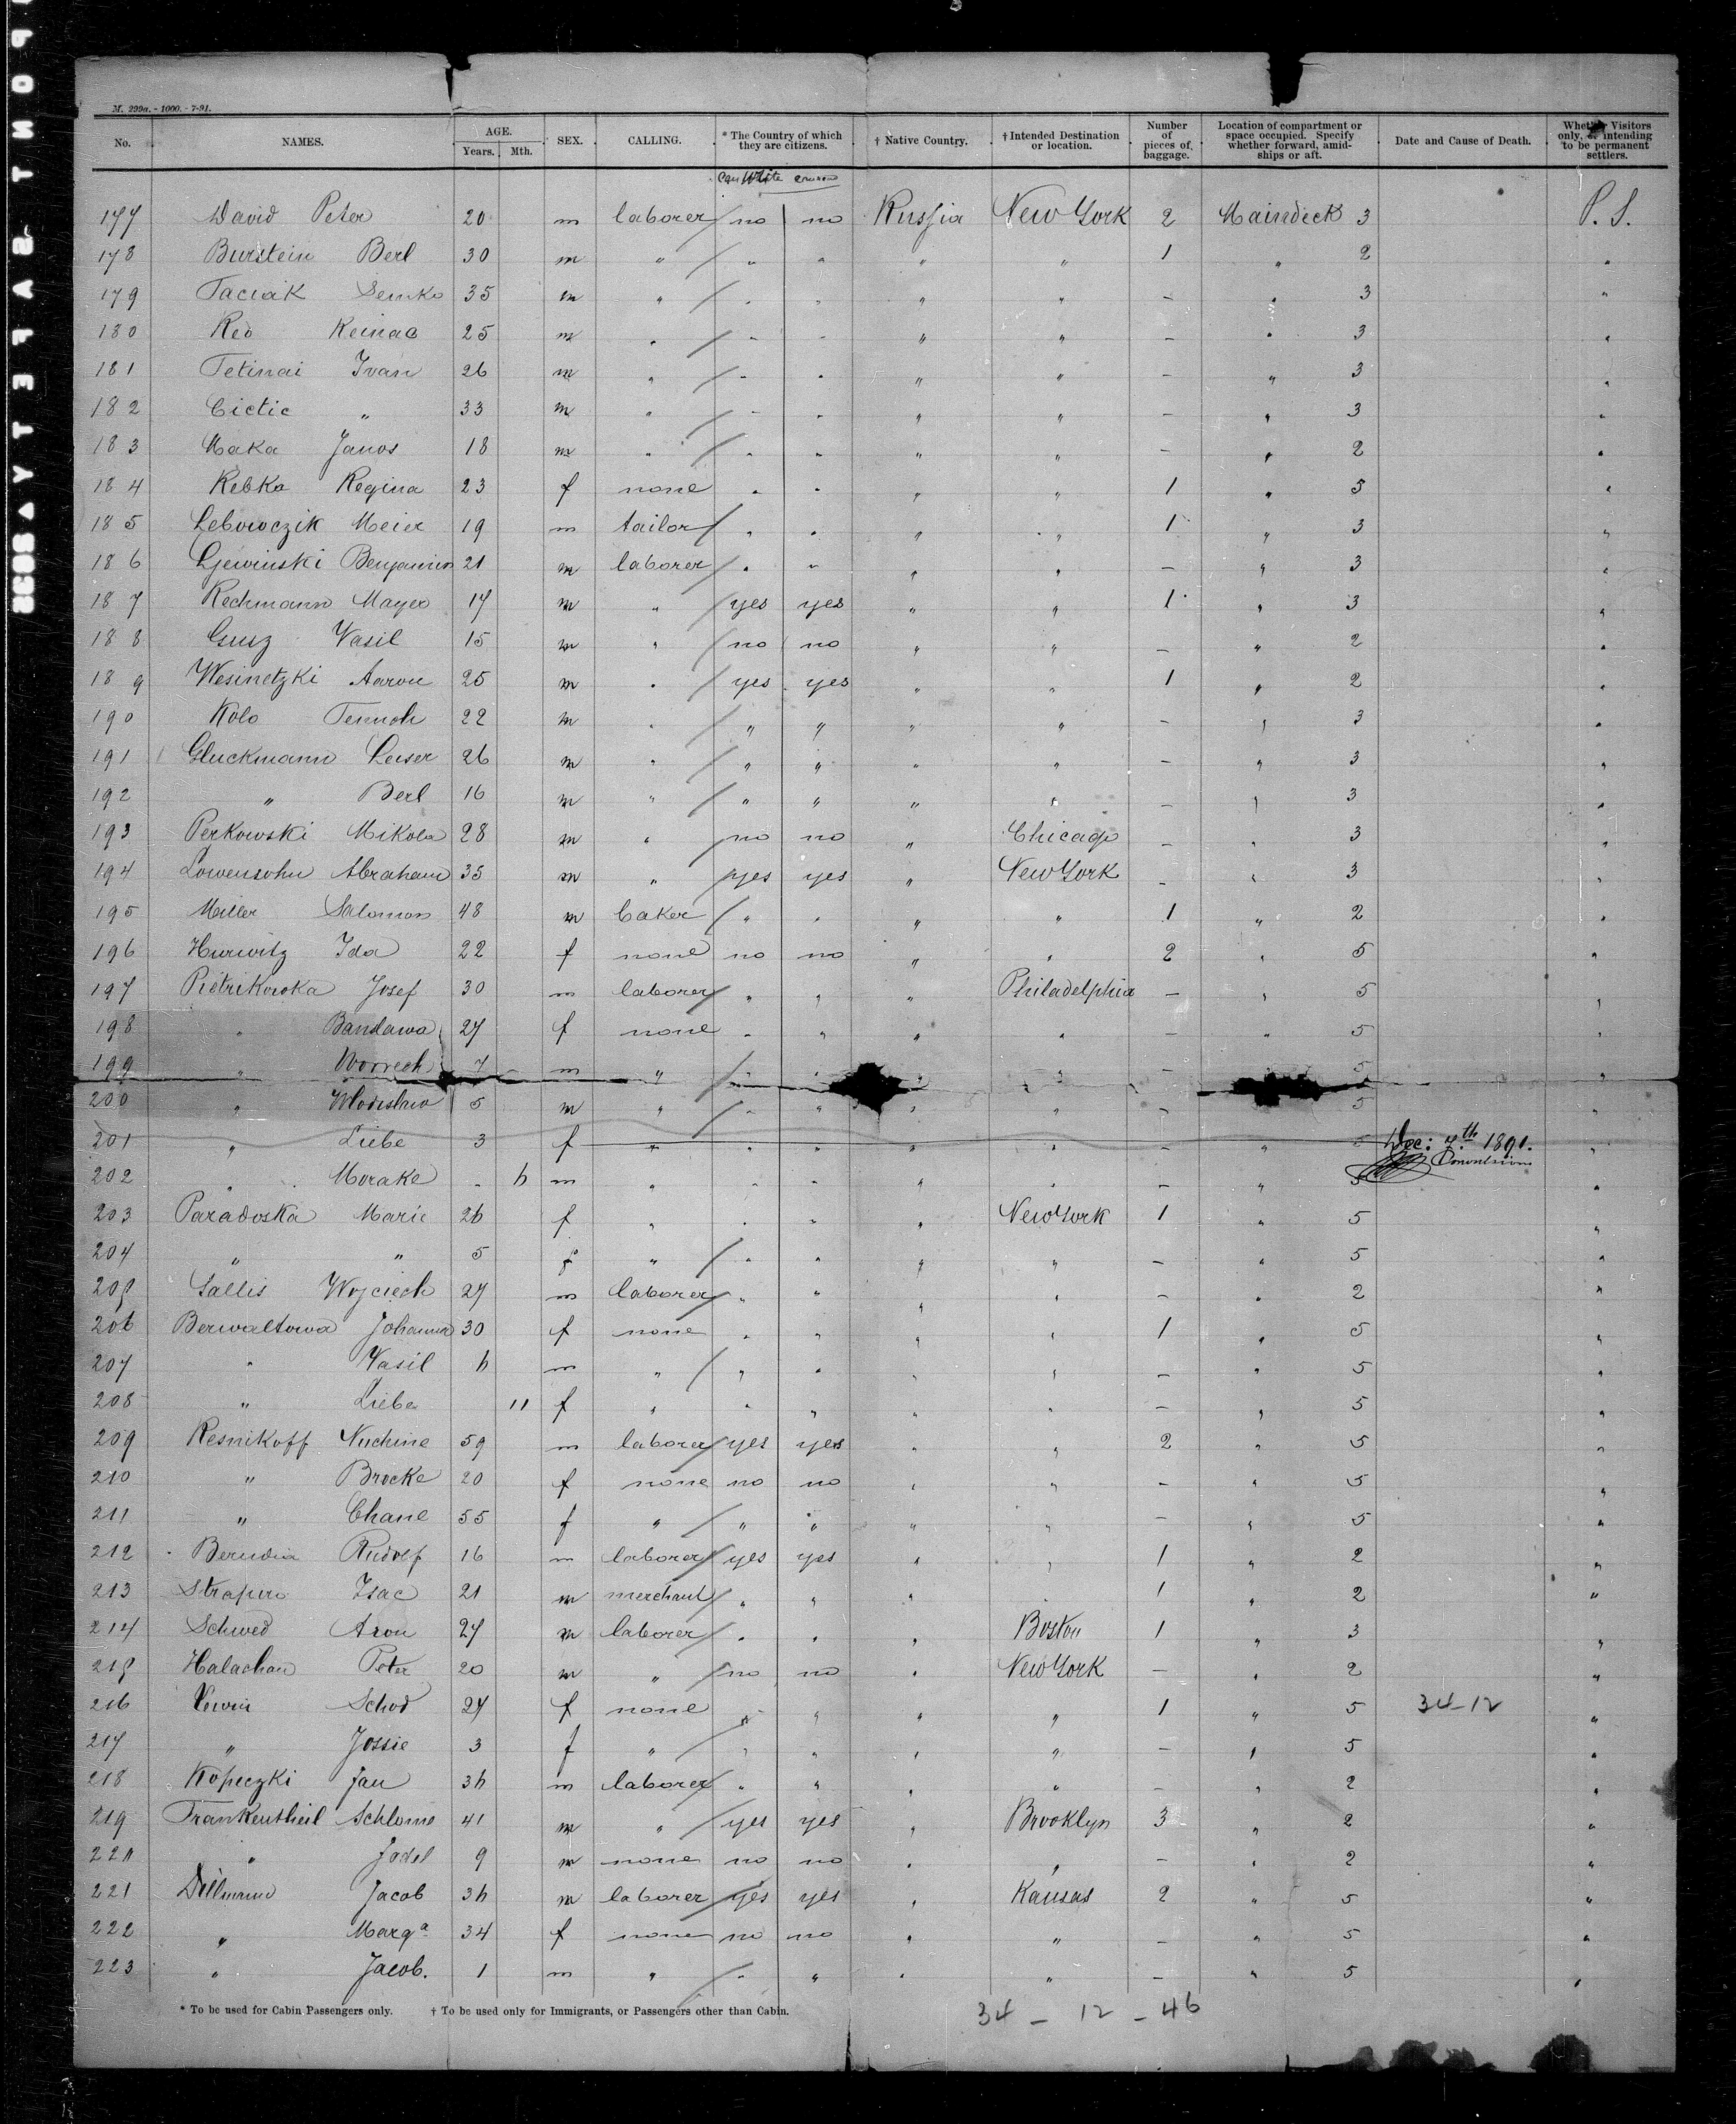 M. 299a. - 1000. - 7-91.
No. NAMES. AGE. Years. Mth. SEX. CALLING. * The Country of which they are citizens. † Native Country. † Intended Destination or location. Number of pieces of baggage. Location of compartment or space occupied. Specify whether forward, amid-ships or aft. Date and Cause of Death. Whether Visitors only, or intending to be permanent settlers.
Can Write
177 David Peter 20 m laborer no no Russia New York 2 Maindeck 3 P. S.
178 Burstein Berl 30 m " " " " " 1 " 2 "
179 Taciak Semko 35 m " " " " " - " 3 "
180 Red 25 m " " " " " - " 3 "
181 Tetinai Ivan 26 m " " " " " - " 3 "
182 Cictic " 33 m " " " " " - " 3 "
183 Maka Janos 18 m " " " " " - " 2 "
184 Rebka Regina 23 f none " " " " 1 " 5 "
185 Lebowczik Meier 19 m tailor " " " " 1 " 3 "
186 Benjamin 21 m laborer " " " " - " 3 "
187 Rechmann Mayer 17 m " yes yes " " 1 " 3 "
188 Gusz Vasil 15 m " no no " " - " 2 "
189 Wesinetzki Aaron 25 m " yes yes " " 1 " 2 "
190 Kolo 22 m " " " " " - " 3 "
191 Gluckmann Leiser 26 m " " " " " - " 3 "
192 " Berl 16 m " " " " " - " 3 "
193 Perkowski Mikola 28 m " no no " Chicago - " 3 "
194 Lowensohn Abraham 35 m " yes yes " New York - " 3 "
195 Miller Salomon 48 m baker " " " " 1 " 2 "
196 Hurwitz Ida 22 f none no no " " 2 " 5 "
197 Pietrikowska Josef 30 m laborer " " " Philadelphia - " 5 "
198 " Bandawa 27 f none " " " " - " 5 "
199 " 7 m " " " " " - 5 "
200 " Wladislaw 5 m " " " " " - 5 "
201 " Liebe 3 f " " " " " - " 5 Dec: 7th 1891. "
Convulsions
202 " Morake - 6 m " " " " " - " 5 "
203 Paradoska Marie 26 f " " " " New York 1 " 5 "
204 " " 5 f " " " " " - " 5 "
205 Gallis Wojciech 27 m laborer " " " " - " 2 "
206 Berwaltowa Johanna 30 f none " " " " 1 " 5 "
207 " Vasil 6 m " " " " " - " 5 "
208 " Liebe 11 f " " " " " - " 5 "
209 Resnikoff Nuchine 59 m laborer yes yes " " 2 " 5 "
210 " Brocke 20 f none no no " " - " 5 "
211 " Chane 55 f " " " " " - " 5 "
212 Berudia Rudolf 16 m laborer yes yes " " 1 " 2 "
213 Strapiro Isac 21 m merchant " " " " 1 " 2 "
214 Schwed Aron 27 m laborer " " " Boston 1 " 3 "
215 Halachan Peter 20 m " no no " New York - " 2 "
216 Schod 24 f none " " " " 1 " 5 34-12 "
217 " Jossie 3 f " " " " " - " 5 "
218 Kopeczki Jan 36 m laborer " " " " - " 2 "
219 Frankentheil Schlome 41 m " yes yes " Brooklyn 3 " 2 "
220 " Jadel 9 m none no no " " - " 2 "
221 Dillmann Jacob 36 m laborer yes yes " Kansas 2 " 5 "
222 " Marga 34 f none no no " " - " 5 "
223 " Jacob. 1 m " " " " " - " 5 "
* To be used for Cabin Passengers only. † To be used only for Immigrants, or Passengers other than Cabin.
34 - 12 - 46